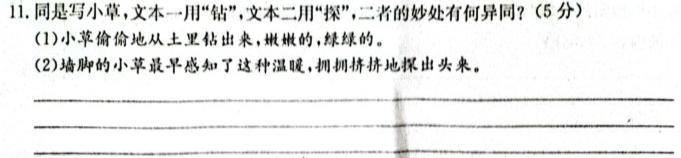 11. 同是写小草,文本一用“钻”,文本二用“探”,二者的妙处有何异同?(5分)
(1)小草偷偷地从土里钻出来,嫩嫩的,绿绿的。
(2)墙脚的小草最早感知了这种温暖,拥拥挤挤地探出头来。